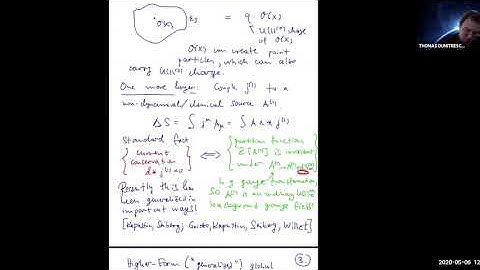 O(x)
= q O(x)
U(1)^(0) charge
of O(x)
O(x) can create point
particles, which can also
carry U(1)^(0) charge.
One more layer: Couple j^(1) to a
non-dynamical/classical source A^(1).
ΔS = ∫ j^μ A_μ = ∫ A ∧ * j^(1)
Standard fact
{ current conservation d * j^(1) = 0 } ⟺ { partition function Z[A^(1)] is invariant under
e.g. gauge transformation,
so A^(1) is an ordinary U(1)^(0)
background gauge field!
Recently this has
been generalized in
important ways!
[Kapustin, Seiberg; Gaiotto, Kapustin, Seiberg, Willett]
3.
Higher-Form ("generalized") global
THOMAS DUMITRESC...
2020-05-06 12